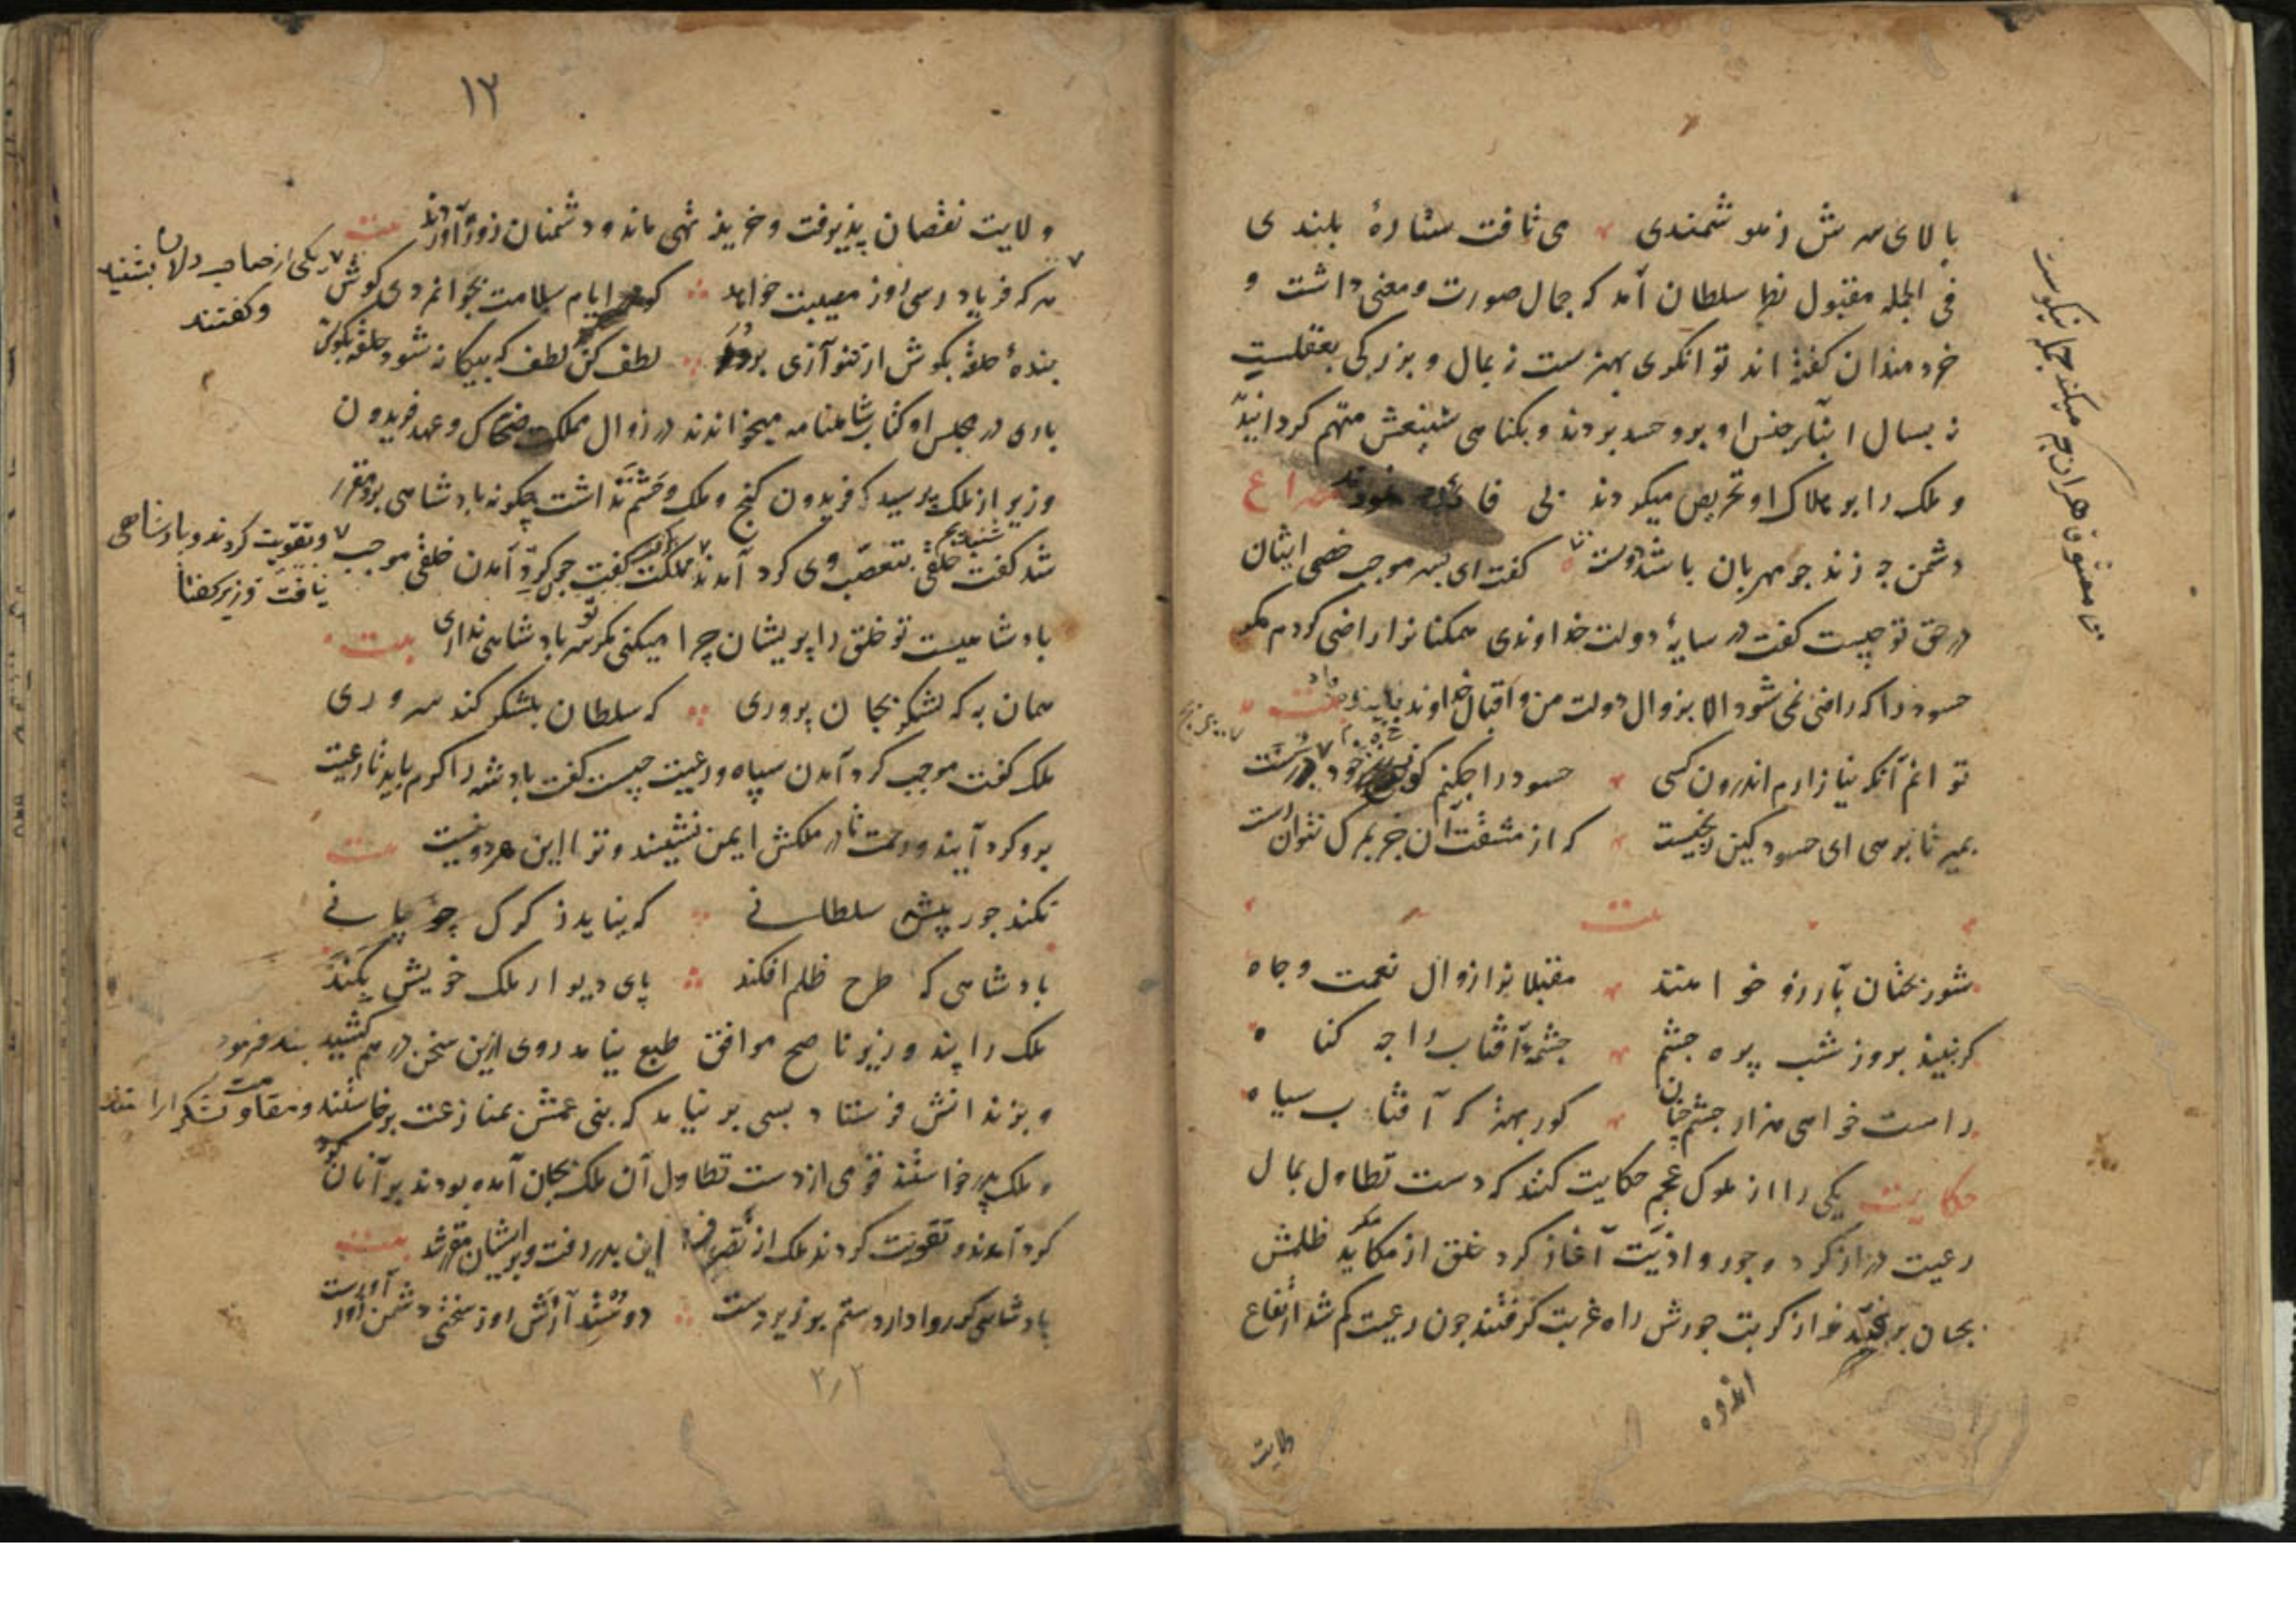 بالای سرش ز هوشمندی می تافت ستارهٔ بلندی
فی الجمله مقبول نظر سلطان آمد که جمال صورت و معنی داشت و
خردمندان گفته اند توانکری بهنرست نه بمال و بزرکی بعقلست
نه بسال ابنای جنس او برو حسد بردند و بکناهی متهم کردانیدند
و ملک را بر هلاک او تحریص میکردند بی فائده مصراع
دشمن چه زند جو مهربان باشد دوست گفت ای پسر موجب خصمی ایشان
در حق تو چیست کفت در سایهٔ دولت خداوندی همکنانرا راضی کردم مکر
حسود را که راضی نمی شود الا بزوال دولت من و اقبال خداوند بیت
توانم آنکه نیازارم اندرون کسی حسود را جکنم کو ز خود برنجست
بمیر تا برهی ای حسود کین رنجیست که از مشقت آن جز بمرک نتوان رست
بیت
شوربختان بآرزو خواهند مقبلانرا زوال نعمت و جاه
کر نبیند بروز شب پره جشم جشمهٔ آفتاب را جه کناه
راست خواهی هزار جشم چنان کور بهتر که آفتاب سیاه
حکایت یکی را از ملوک عجم حکایت کنند که دست تطاول بمال
رعیت دراز کرد و جور و اذیت آغاز کرد خلق از مکاید ظلمش
بجهان برفتند و از کربت جورش راه غربت کرفتند جون رعیت کم شد ارتفاع
اندوه
ولایت
۱۲
ولایت نقصان پذیرفت و خزینه تهی ماند و دشمنان زور آوردند بیت
هر که فریاد رس روز مصیبت خواهد کو در ایام سلامت بجوانمردی کوش
بندهٔ حلقه بکوش ار ننوازی برود لطف کن لطف که بیکانه شود حلقه بکوش
یکی از صاحب دلان بشنید
و کفتند
باری در مجلس او کتاب شاهنامه میخواندند در زوال مملکت ضحاک و عهد فریدون
وزیر از ملک پرسید که فریدون کنج و ملک و حشم نداشت چکونه پادشاهی برو مقرر
شد کفت خلقی بتعصب وی کرد آمدند کفت جون کرد آمدن خلقی موجب
و تقویت کردند و پادشاهی
یافت وزیر کفتا
پادشاهیست تو خلق را پریشان چرا میکنی مکر سر پادشاهی نداری بیت
همان به که لشکر بجان پروری که سلطان بلشکر کند سروری
ملک کفت موجب کرد آمدن سپاه و رعیت چیست کفت پادشه را کرم باید تا رعیت
برو کرد آیند و رحمت تا در ملکش ایمن نشینند و ترا این هر دو نیست بیت
نکند جور پیشه سلطانی که نیاید ز کرک چوپانی
پادشاهی که طرح ظلم افکند پای دیوار ملک خویش بکند
ملک را پند وزیر ناصح موافق طبع نیامد روی ازین سخن در هم کشید بند فرمود
و بزندانش فرستاد بسی بر نیامد که بنی عمش بمنازعت برخاستند و بمقاومت لشکر آراستند
و ملک پدر خواستند قومی از دست تطاول آن ملک بجان آمده بودند بر آنان
کرد آمدند و تقویت کردند ملک از تصرف این بدر رفت و بر ایشان مقرر شد بیت
پادشاهی کو روا دارد ستم بر زیر دست دوستدارش روز سختی دشمن زور آورست